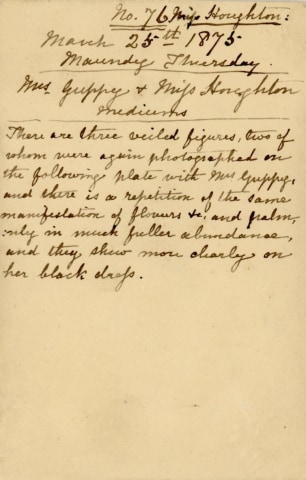 No. 76 Miss Houghton:
March 25th 1875
Maundy Thursday.
Mrs Guppy & Miss Houghton
Mediums
There are three veiled figures, two of
whom were again photographed on
the following plate with Mrs Guppy,
and there is a repetition of the same
manifestation of flowers &c, and palm,
:only in much fuller abundance,
and they shew more clearly on
her black dress.